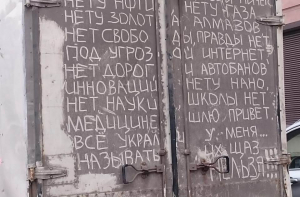 НЕТУ НЕФТИ НЕТУ ГАЗА
НЕТУ ЗОЛОТ АЛМАЗОВ
НЕТ СВОБО ДЫ, ПРАВДЫ НЕТ
ПОД УГРОЗ ОЙ ИНТЕРНЕТ
НЕТ ДОРОГ, И АВТОБАНОВ
ИННОВАЦИЙ НЕТУ НАНО,
НЕТ НАУКИ ШКОЛЫ НЕТ,
МЕДИЦИНЕ ШЛЮ ПРИВЕТ,
ВСЁ УКРАЛ У МЕНЯ...
НАЗЫВАТЬ ИХ ЩАЗ
НЕЛЬЗЯ!!!